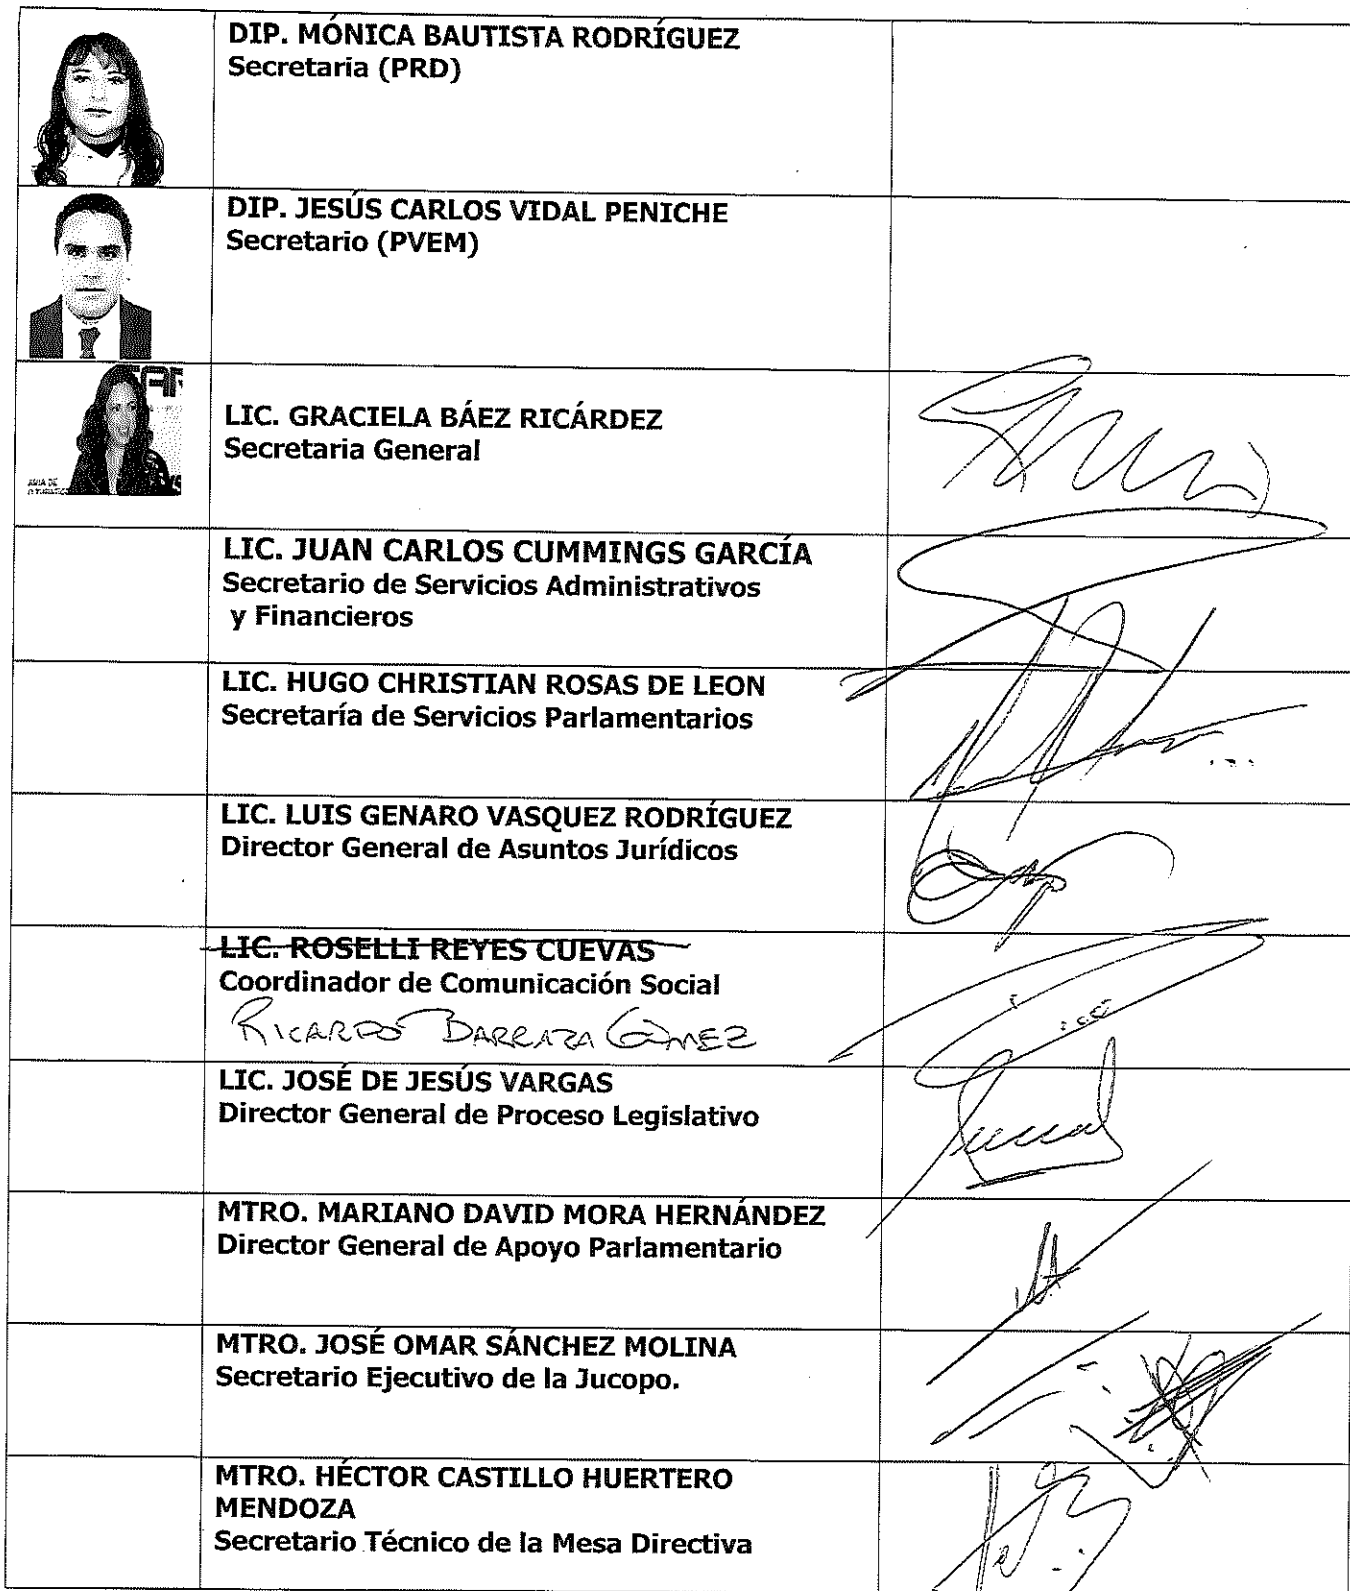 DIP. MÓNICA BAUTISTA RODRÍGUEZ
Secretaria (PRD)
DIP. JESÚS CARLOS VIDAL PENICHE
Secretario (PVEM)
LIC. GRACIELA BÁEZ RICÁRDEZ
Secretaria General
LIC. JUAN CARLOS CUMMINGS GARCÍA
Secretario de Servicios Administrativos
y Financieros
LIC. HUGO CHRISTIAN ROSAS DE LEON
Secretaría de Servicios Parlamentarios
LIC. LUIS GENARO VASQUEZ RODRÍGUEZ
Director General de Asuntos Jurídicos
LIC. ROSELLI REYES CUEVAS
Coordinador de Comunicación Social
RICARDO BARRAZA GÓMEZ
LIC. JOSÉ DE JESÚS VARGAS
Director General de Proceso Legislativo
MTRO. MARIANO DAVID MORA HERNÁNDEZ
Director General de Apoyo Parlamentario
MTRO. JOSÉ OMAR SÁNCHEZ MOLINA
Secretario Ejecutivo de la Jucopo.
MTRO. HÉCTOR CASTILLO HUERTERO
MENDOZA
Secretario Técnico de la Mesa Directiva